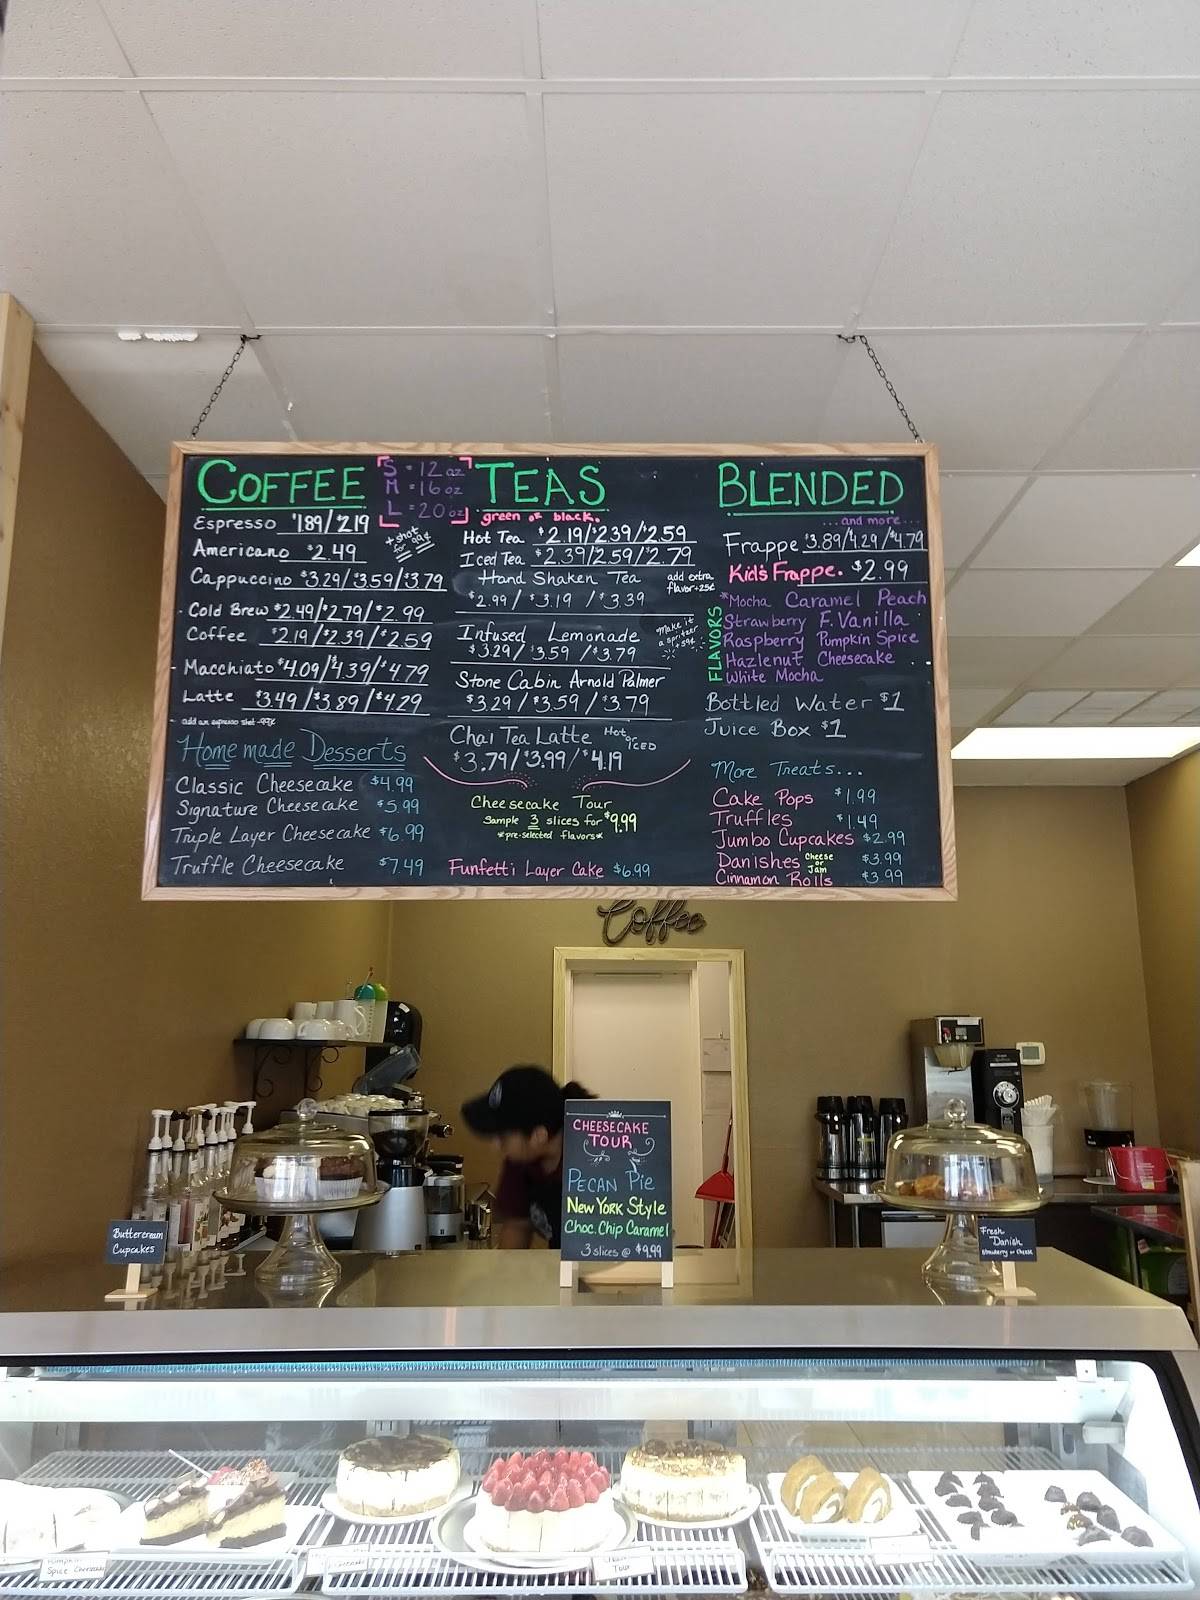 COFFEE
S = 12 oz
M = 16 oz
L = 20 oz
Espresso $1.89/$2.19
+ shot for 99¢
Americano $2.49
Cappuccino $3.29/$3.59/$3.79
Cold Brew $2.49/$2.79/$2.99
Coffee $2.19/$2.39/$2.59
Macchiato $4.09/$4.39/$4.79
Latte $3.49/$3.89/$4.29
add an espresso shot .99¢
Homemade Desserts
Classic Cheesecake $4.99
Signature Cheesecake $5.99
Triple Layer Cheesecake $6.99
Truffle Cheesecake $7.49
TEAS
green or black.
Hot Tea $2.19/$2.39/$2.59
Iced Tea $2.39/2.59/$2.79
Hand Shaken Tea
$2.99/$3.19/$3.39
add extra
flavor +25¢
Infused Lemonade
$3.29/$3.59/$3.79
Make it
a spritzer
+59¢
Stone Cabin Arnold Palmer
$3.29/$3.59/$3.79
Chai Tea Latte Hot or ICED
$3.79/$3.99/$4.19
Cheesecake Tour
Sample 3 slices for $9.99
*pre-selected flavors*
Funfetti Layer Cake $6.99
BLENDED
...and more...
Frappe $3.89/4.29/$4.79
Kid's Frappe. $2.99
FLAVORS
*Mocha Caramel Peach
Strawberry F. Vanilla
Raspberry Pumpkin Spice
Hazlenut Cheesecake
White Mocha
Bottled Water $1
Juice Box $1
More Treats...
Cake Pops $1.99
Truffles $1.49
Jumbo Cupcakes $2.99
Danishes Cheese or Jam $3.99
Cinnamon Rolls $3.99
Coffee
CHEESECAKE
TOUR
PECAN Pie
New York Style
Choc. Chip Caramel
3 slices @ $9.99
Buttercream
Cupcakes
Fresh
Danish
Strawberry or Cheese
Pumpkin
Spice Cheesecake
Tour